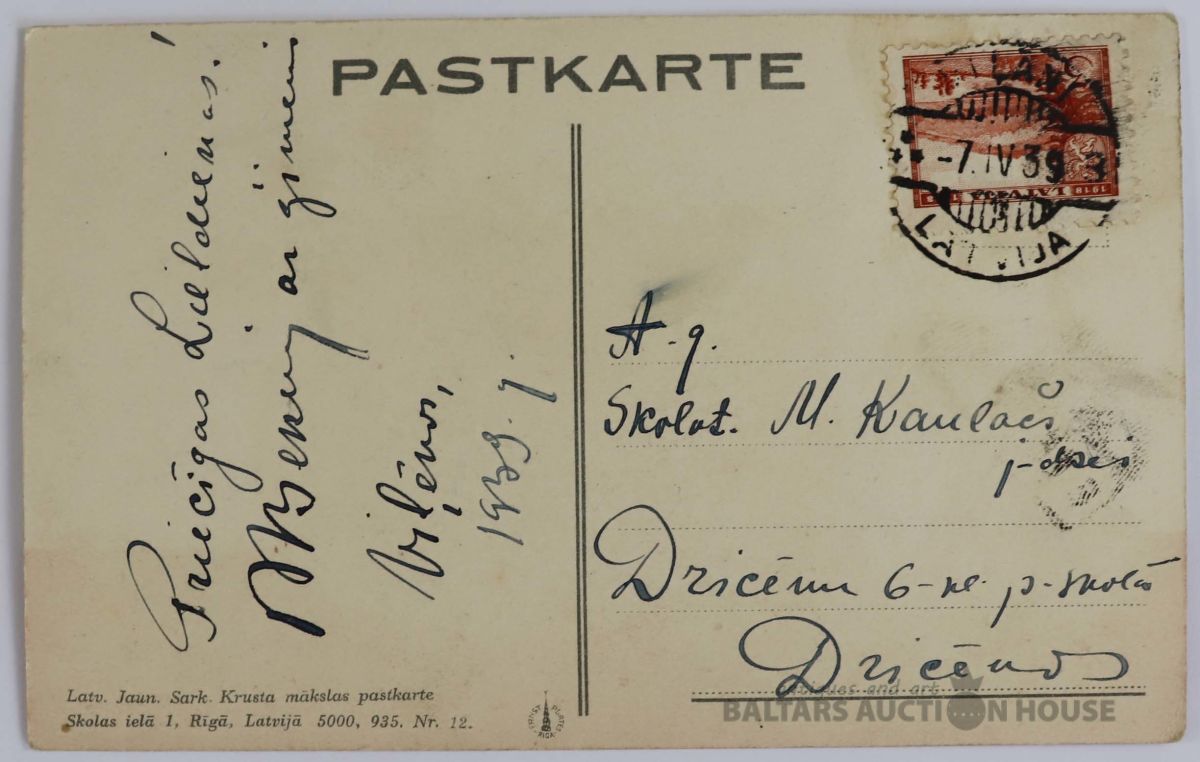 PASTKARTE
Priecīgas Lieldienas!
ar ģimeni
Viļēnos,
1939. g
A. g.
Skolot. M. Kaulačs
j-dzei
Dricēnu 6-kl. p-skolā
Dricēnos
-7.IV 39
LATVIJA
LATVIJA
1918
Latv. Jaun. Sark. Krusta mākslas pastkarte
Skolas ielā 1, Rīgā, Latvijā 5000, 935. Nr. 12.
RIGA
antiques and art
BALTARS AUCTION HOUSE